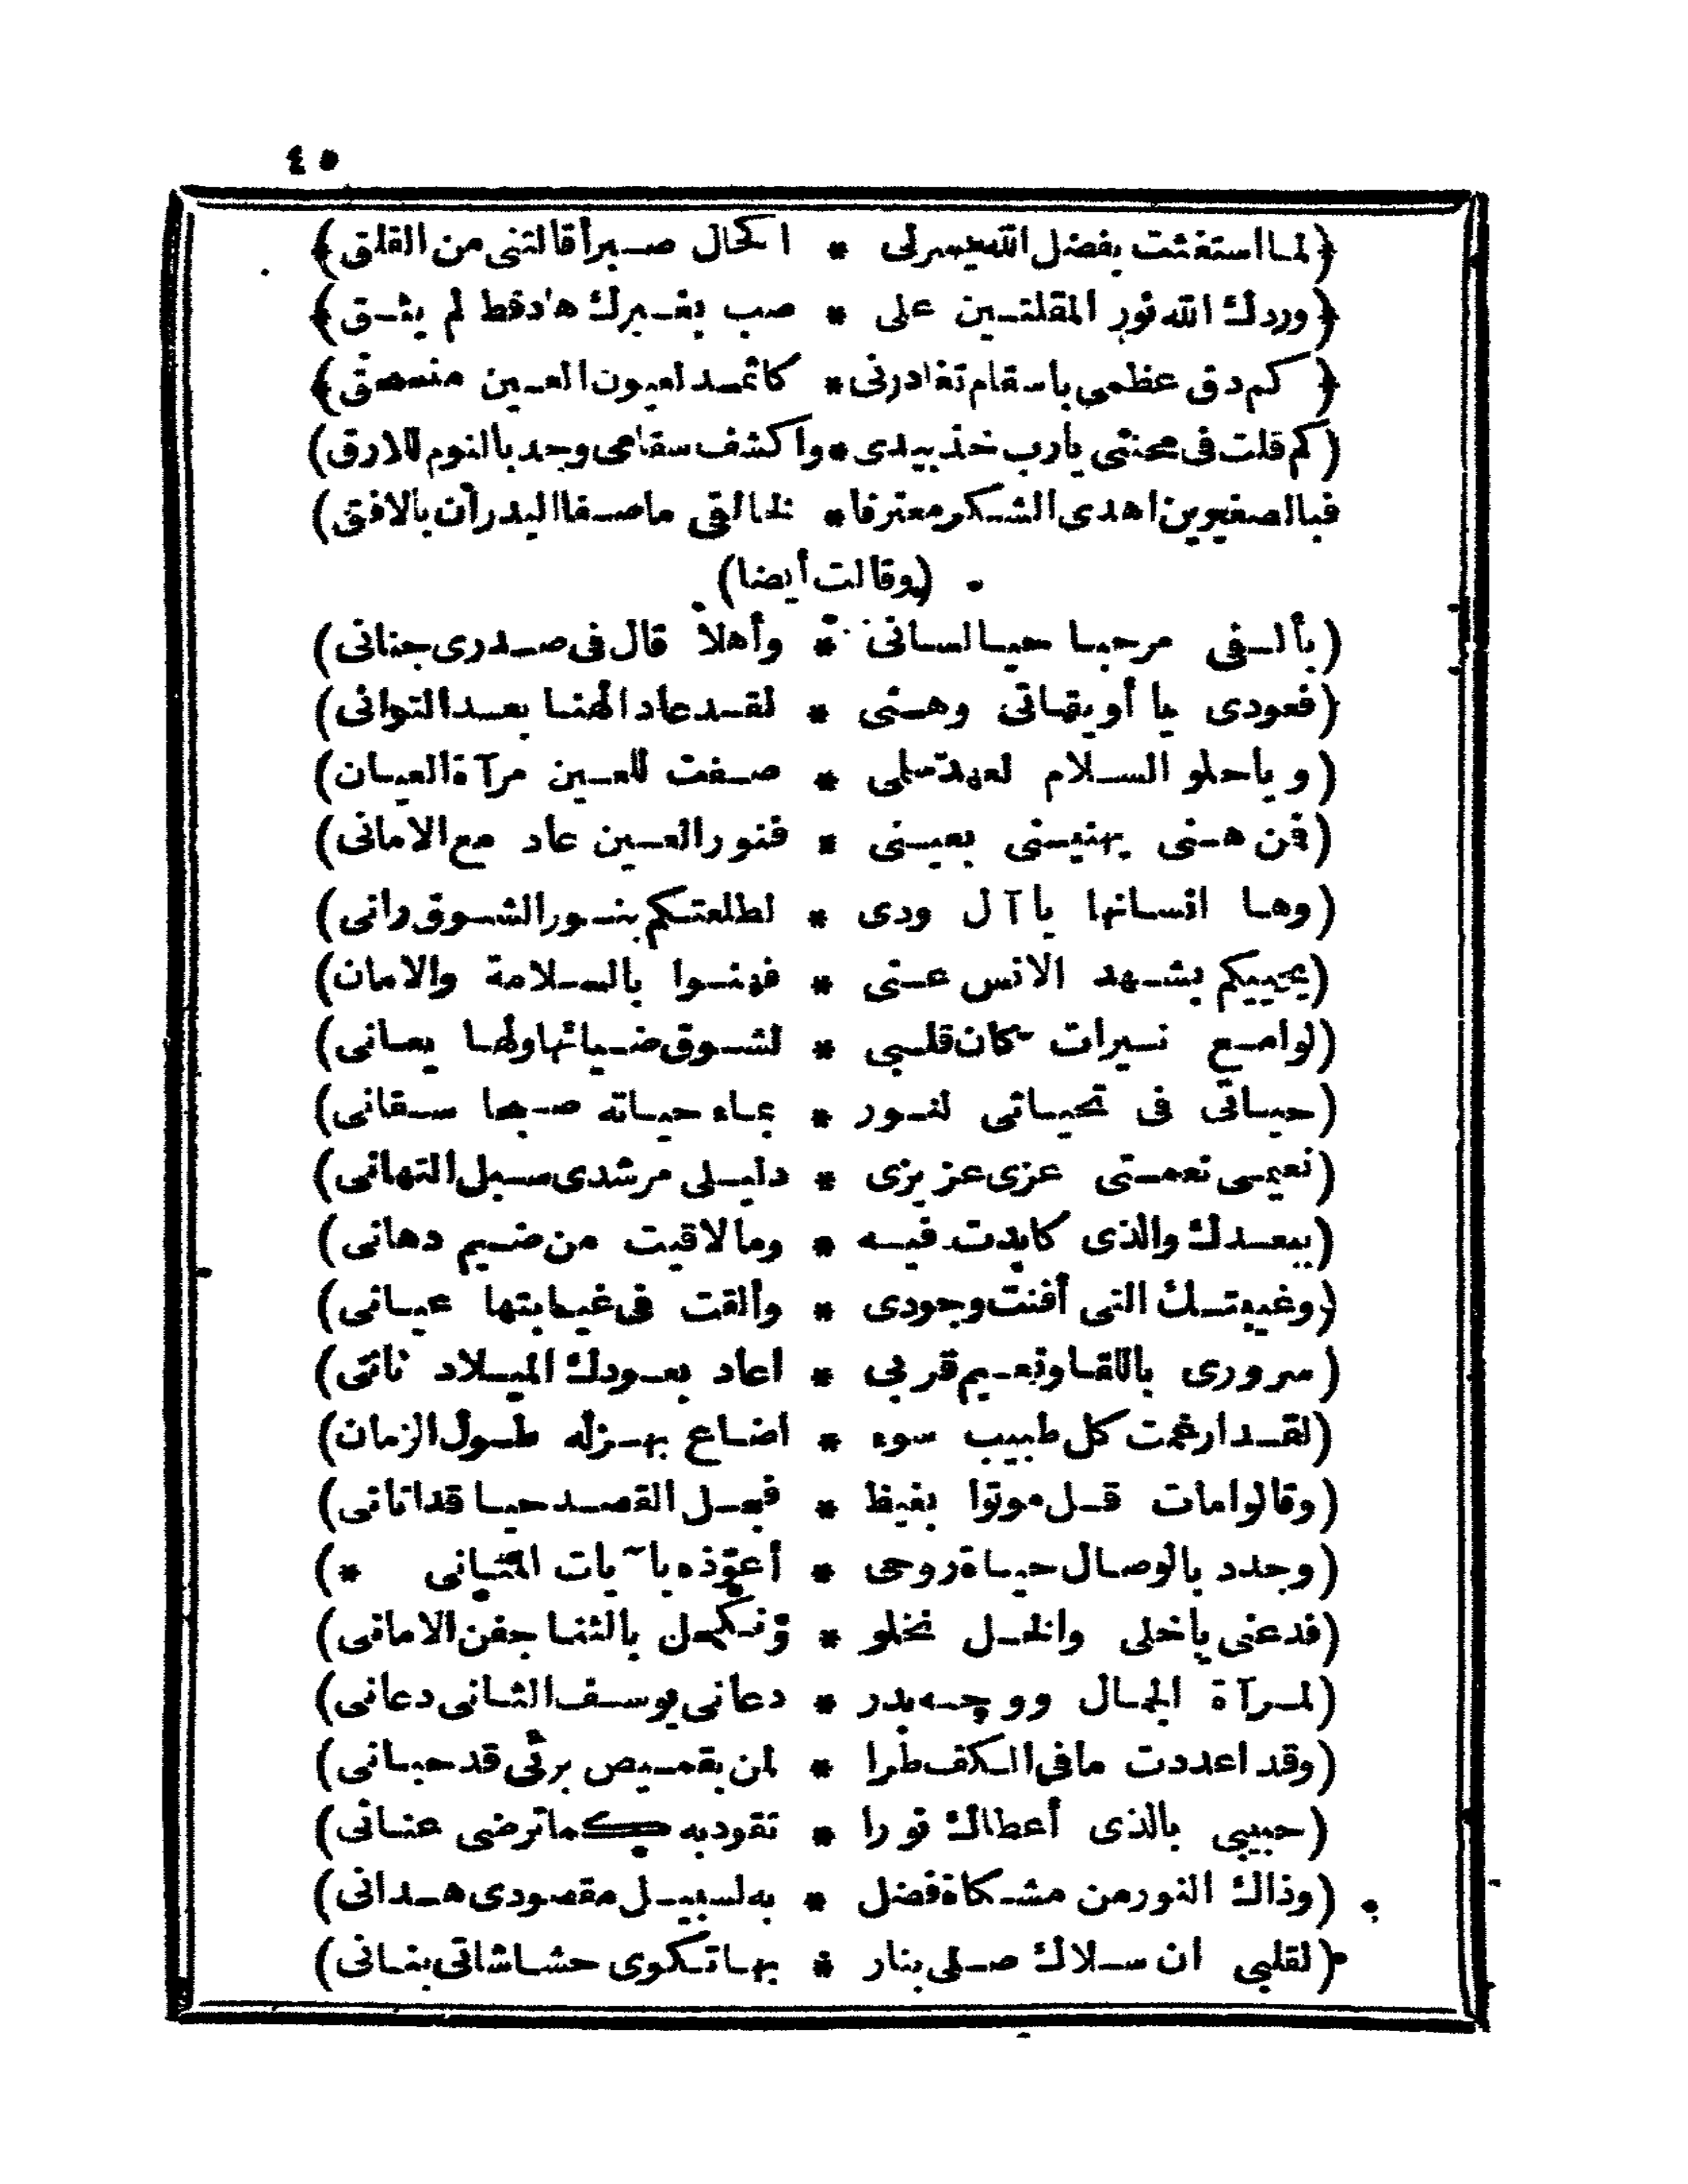 ٤٥
(لما استغثت بفضل الله يسر لى * اكحال صبر أقالتنى من القلق)
(وردك الله نور المقلتين على * صب بغيرك هاد قط لم يثق)
(كم دق عظمى باسقام تغادرنى * كاثمد لعيون العين منسحق)
(كم قلت فى محنتى يارب خذ بيدى * واكشف سقامى وجد بالنوم للارق)
فبالصغيرين اهدى الشكر معترفا * لخالقى ما صفا البدران بالافق)
(وقالت أيضا)
(بألفى مرحبا حيا لسانى * وأهلا قال فى صدرى جنانى)
(فعودى يا أويقاتى وهنى * لقد عاد الهنا بعد التوانى)
(ويا حلو السلام لعهدتملى * صفت للعين مرآة العيان)
(فمن هنى يهنينى بعينى * فنور العين عاد مع الامانى)
(وها انسانها يا آل ودى * لطلعتكم بنور الشوق رانى)
(يحييكم بشهد الانس عنى * فهنوا بالسلامة والامان)
(لوامع نيرات كان قلبى * لشوق ضيائها ولها يعانى)
(حياتى فى تحياتى لنور * بماء حياته صبحا سقانى)
(نعيمى نعمتى عزى عزيزى * دليلى مرشدى سبل التهانى)
(ببعدك والذى كابدت فيه * وما لاقيت من ضيم دهانى)
(وغيبتك التى أفنت وجودى * وألقت فى غيابتها عيانى)
(سرورى باللقا ونعيم قربى * اعاد بعودك الميلاد ثانى)
(لقد ارغمت كل طبيب سوء * اضاع بهزله طول الزمان)
(وقالوا مات قل موتوا بغيظ * فجل القصد حيا قد اتانى)
(وجدد بالوصال حياة روحى * أعوّذه بآيات المثانى *)
(فدعنى ياخلى والخل نخلو * ونكحل بالثنا جفن الامانى)
(لمرآة الجمال ووجه بدر * دعانى يوسف الثانى دعانى)
(وقد اعددت ما فى الكف طرا * لمن بقميص برئى قد حبانى)
(حبيبى بالذى أعطاك نورا * تقود به كما ترضى عنانى)
(وذاك النور من مشكاة فضل * به لسبيل مقصودى هدانى)
(لقلبى ان سلاك صلى بنار * بها تكوى حشاشاتى بنانى)